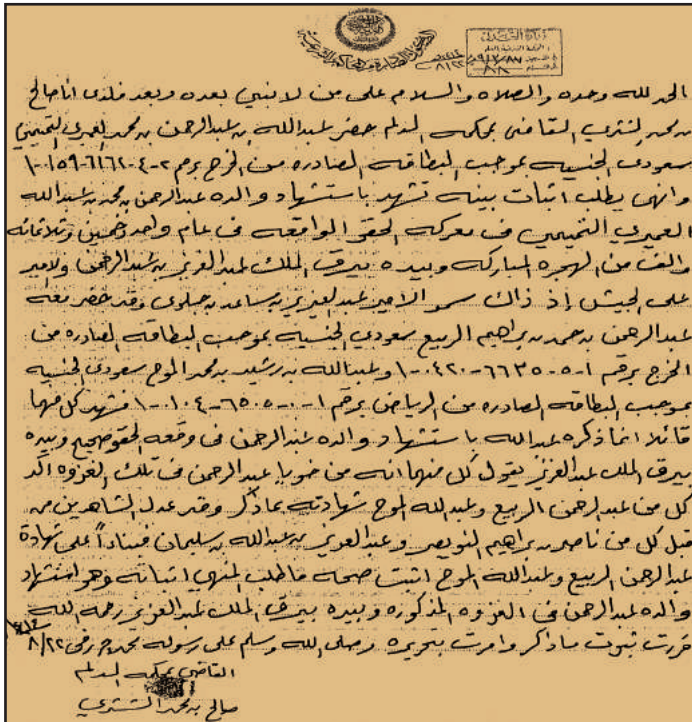 الصكوك الصادرة من المحاكم الشرعية
وزارة العدل
الحمد لله وحده والصلاه والسلام على من لا نبي بعده وبعد فلدى انا صالح
بن محمد الشتري القاضي بمحكمه الدلم حضر عبدالله بن عبدالرحمن بن محمد العميري التميمي
سعودي الجنسيه بموجب البطاقه الصادره من الخرج برقم
وانهى يطلب اثبات بينه تشهد باستشهاد والده عبدالرحمن بن محمد بن عبدالله
العميري التميمي في معركه الحقو الواقعه في عام واحد وخمسين وثلاثمائه
والف من الهجره المباركه وبيده بيرق الملك عبدالعزيز بن عبدالرحمن والامير
على الجيش إذ ذاك سمو الامير عبدالعزيز بن مساعد بن جلوي وقد حضر معه
عبدالرحمن بن حمد بن براهيم الربيع سعودي الجنسيه بموجب البطاقه الصادره من
الخرج برقم ١-٥-٦٦٣٥-٠٤٢٠-١ وعبدالله بن رشيد بن محمد الموح سعودي الجنسيه
بموجب البطاقه الصادره من الرياض برقم ١-٠-٦٥٠٥-١٠٤-١ فشهد كل منهما
قائلا انما ذكره عبدالله باستشهاد والده عبدالرحمن في وقعه الحقو صحيح وبيده
بيرق الملك عبدالعزيز يقول كل منهما انه من خويا عبدالرحمن في تلك الغزوه اكد
كل من عبدالرحمن الربيع وعبدالله الموح شهادته بما ذكر وقد عدل الشاهدين من
قبل كل من ناصر بن براهيم النويصر وعبدالعزيز بن عبدالله بن سليمان فبناءاً على شهادة
عبدالرحمن الربيع وعبدالله الموح اثبت صحه ما طلب المنهي اثباته وهو استشهاد
والده عبدالرحمن في الغزوه المذكوره وبيده بيرق الملك عبدالعزيز رحمه الله
قررت ثبوت ما ذكر وامرت بتحريره وصلى الله وسلم على رسوله محمد حرر في ٨/٢٢
القاضي بمحكمه الدلم
صالح بن محمد الشتري